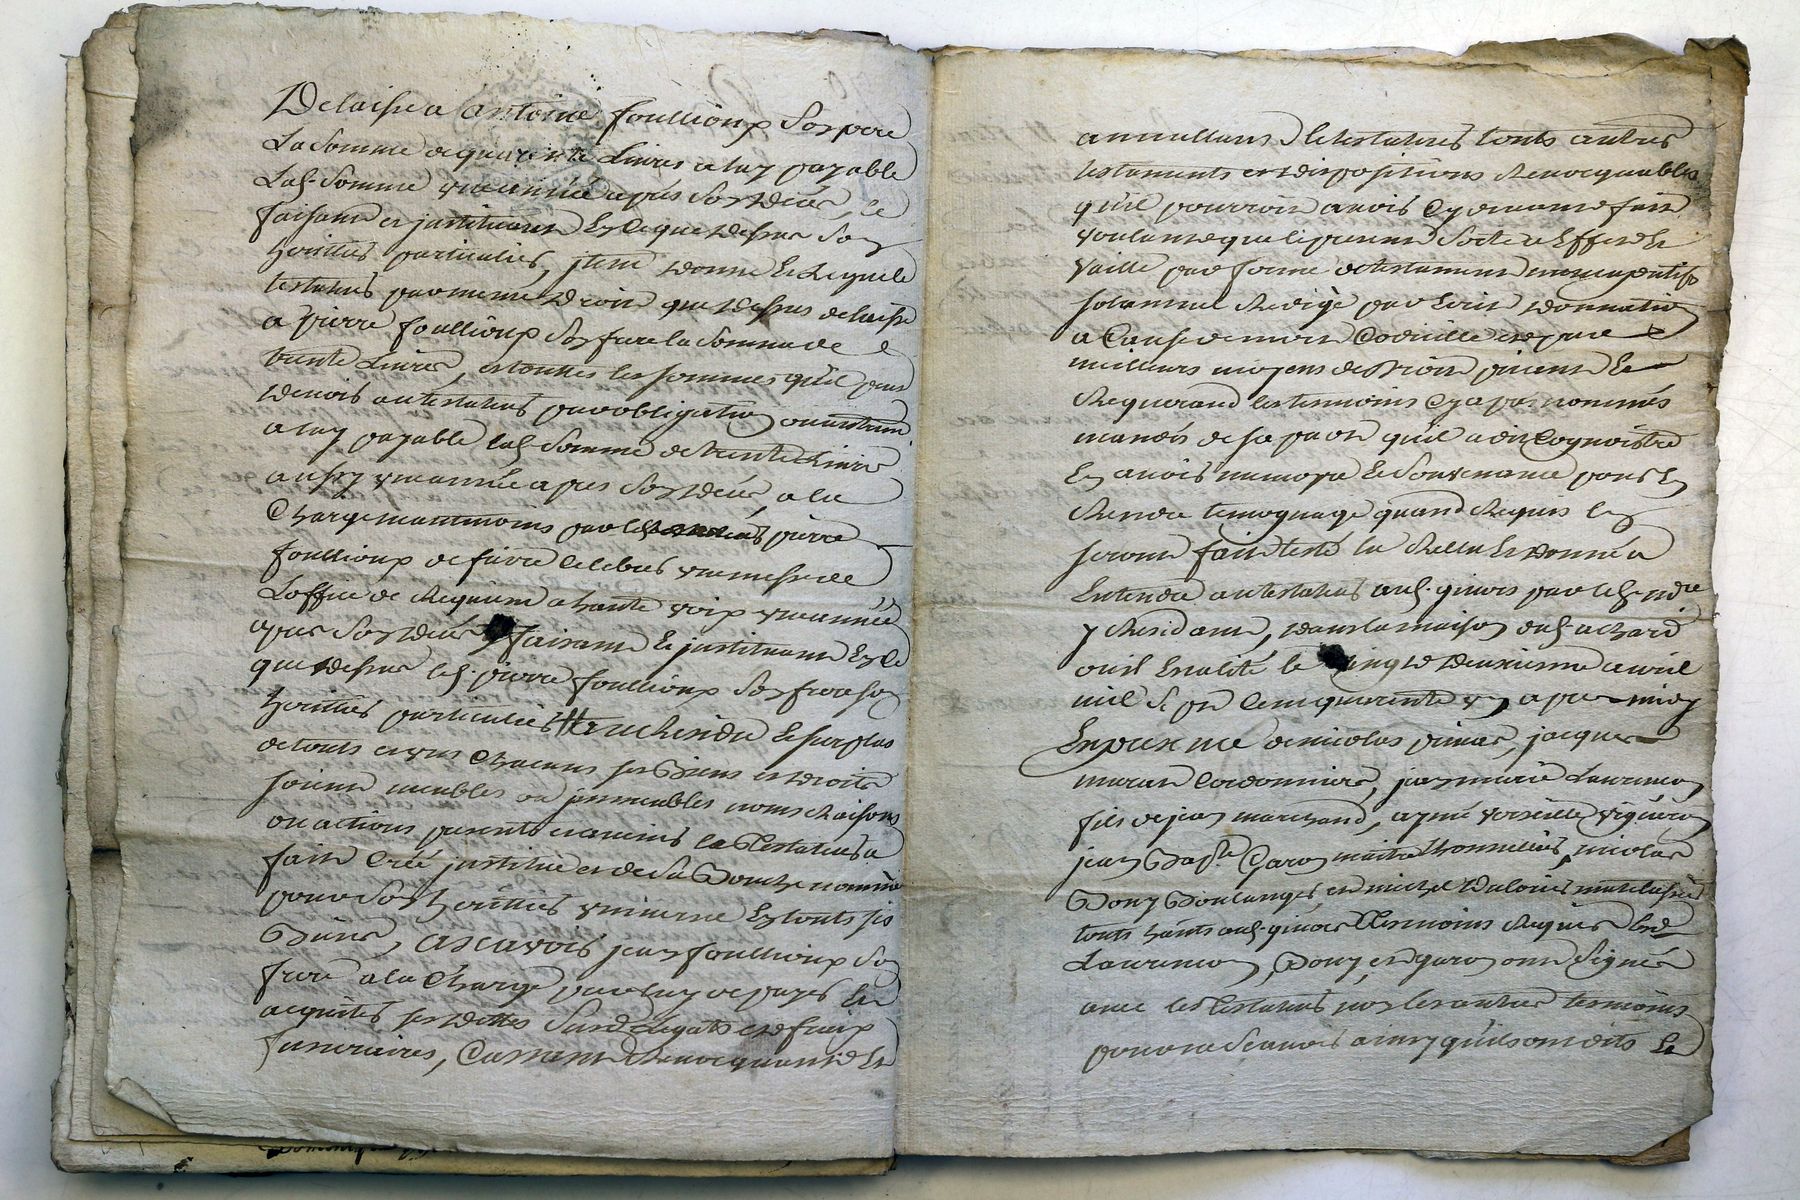 Delaisse a antoine foullioux Son pere
La Somme de quarente Livres a luy payable
Lad. Somme une année apres Son décés, le
faisant et justituant En ce que dessus Son
heritier particulier, jtem donne Et legue le
testateur par meme droit que dessus delaisse
a pierre foullioux Son frere la Somme de
trente Livres, et touttes les sommes qu'il peut
devoir au testateur par obligation ou autrement
a luy payable lad. Somme de trente Livres
aussy une année apres Son décés, a la
Charge neantmoins par led. pierre
foullioux de faire celebrer une messe de
L'office de Requiem a haute voix une année
apres Son décés faisant Et justituant En ce
que dessus led. pierre foullioux Son frere Son
heritier particulier Et au Residu Et surplus
de touts et uns chacuns ses Biens et droits
soient meubles ou jmmeubles noms Raisons
ou actions presents et avenirs le Testateur a
fait Créé justitué et de Sa Bouche nommé
pour Son heritier universel En touts ses
Biens, a scavoir jean foullioux Son
frere a la Charge par luy de payer Et
acquiter ses dettes Susd. Legats et fraix
funeraires, Cassant Revocquant Et
annullant le testateur touts autres
testaments et dispositions Revocquables
qu'il pourroit avoir Cy devant fait
voulant que le present Sorte a Effet Et
vaille par forme de testament nuncupatif
solemnel Redigé par Ecrit donnation
a Cause de mort Codicille et par
meilleurs moyens de Droit priant Et
Requerant les temoins Cy apres nommés
mandés de sa part qu'il a dit Cognoistre
En avoir memoire Et Souvenance pour En
Rendre temognage quand Requis En
seront fait testé lu Relu Et donné a
Entendre au testateur aud. givors par led. no.re
y Residant, dans la maison dud. achard
ou il Est alité le vingt deuxieme avril
mil Sept Cent quarente un apres midy
En presence de nicolas pinar, jacques
maran Cordonniers, jean marie Laurenson
fils de jean marchand, aymé verzelle vigneron
jean Bap.te Garon maitre Thonnelier, nicolas
Bony Boulanger, et michel Valoüer mattelassier
touts hants aud. givors Temoins Requis Led.
Laurenson, Bony, et garon ont Signé
avec le Testateur non les autres temoins
pour ne Scavoir ainsy qu'ils ont dits Et